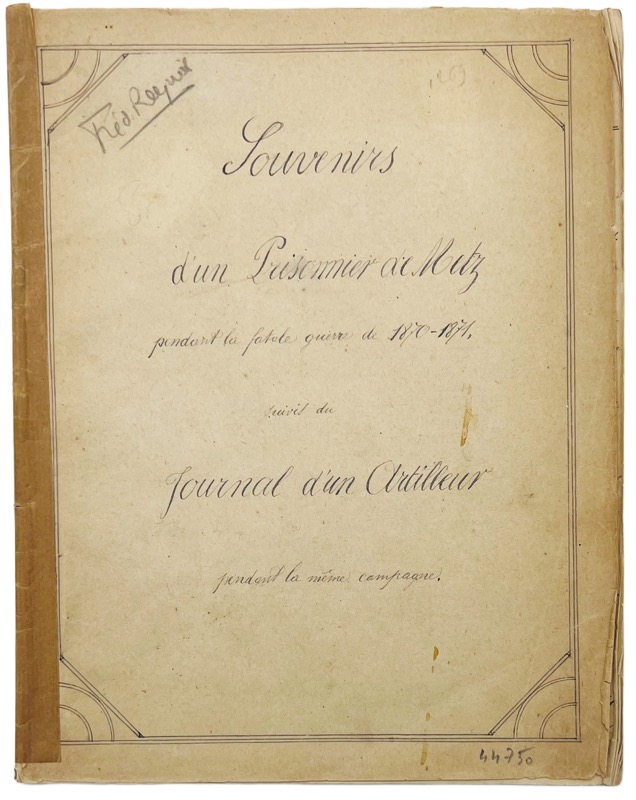 Fréd. Reynier
Souvenirs
d'un Prisonnier de Metz
pendant la fatale guerre de 1870-1871.
suivis du
Journal d'un Artilleur
pendant la même campagne.
44750